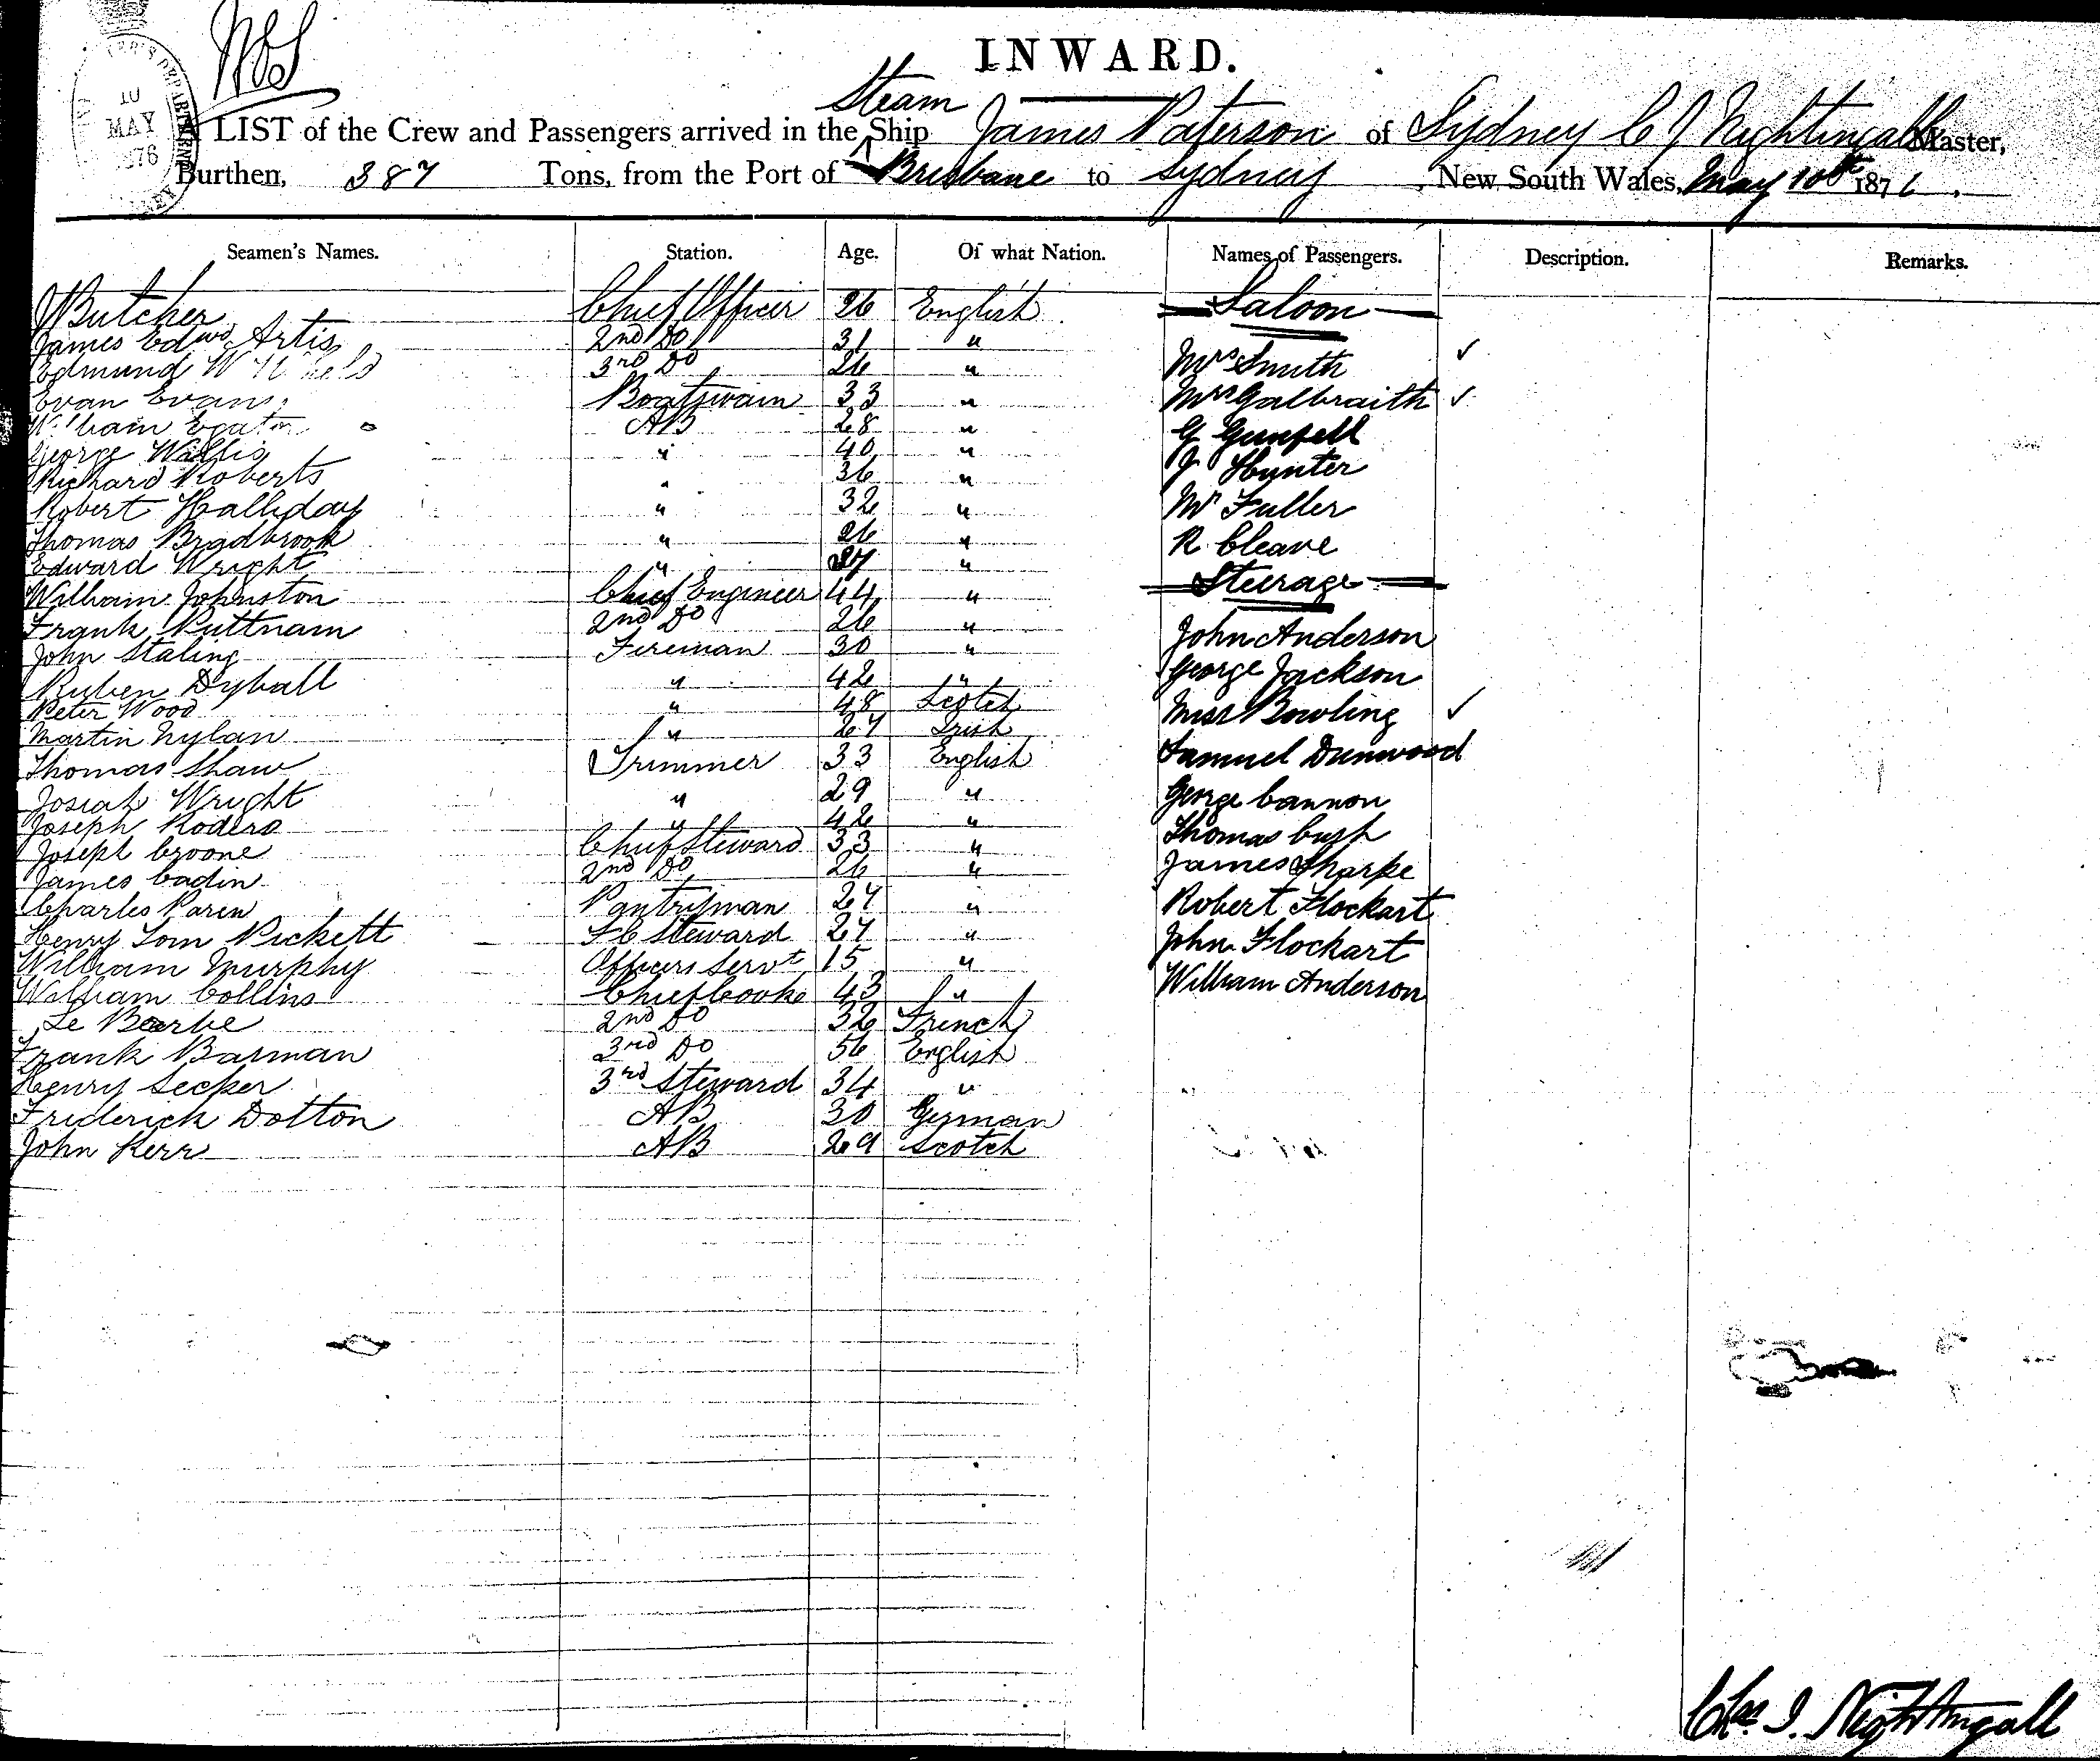 INWARD.
Steam
A LIST of the Crew and Passengers arrived in the Ship James Paterson of Sydney C J Nightingall Master,
Burthen, 387 Tons, from the Port of Brisbane to Sydney, New South Wales, May 10th 1876.
10
MAY
Seamen's Names. Station. Age. Of what Nation. Names of Passengers. Description. Remarks.
Butcher Chief Officer 26 English
James Edwd Artis 2nd Do 31 "
Edmund 3rd Do 26 "
Evan Evans Boatswain 33 "
William AB 28 "
George Wallis " 40 "
Richard Roberts " 36 "
Robert Halliday " 32 "
Thomas Bradbrook " 26 "
Edward Wright " 27 "
William Johnston Chief Engineer 44 "
Frank Puttnam 2nd Do 26 "
John Staling Fireman 30 "
Ruben Dyball " 42 "
Peter Wood " 48 Scotch
Martin Nylan " 27 Irish
Thomas Shaw Trimmer 33 English
Josiah Wright " 29 "
Joseph Rodero " 42 "
Joseph Croone Chief Steward 33 "
James Cadin 2nd Do 26 "
Charles Paren Pantryman 27 "
Henry Tom Pickett F C Steward 27 "
William Murphy Officers Servt 15 "
William Collins Chief Cooke 43 "
Le 2nd Do 32 French
Frank Barman 3rd Do 56 English
Henry Secker 3rd Steward 34 "
Friderick Dotton AB 30 German
John Kerr AB 29 Scotch
Saloon
Mrs Smith ✓
Mrs Galbraith ✓
G
J Hunter
Mr Fuller
R. Cleave
Steerage
John Anderson
George Jackson
Miss Bowling ✓
Samuel Dunwood
George Cannon
Thomas Cush
James Sharpe
Robert Flockart
John Flockart
William Anderson
Chas J. Nightingall